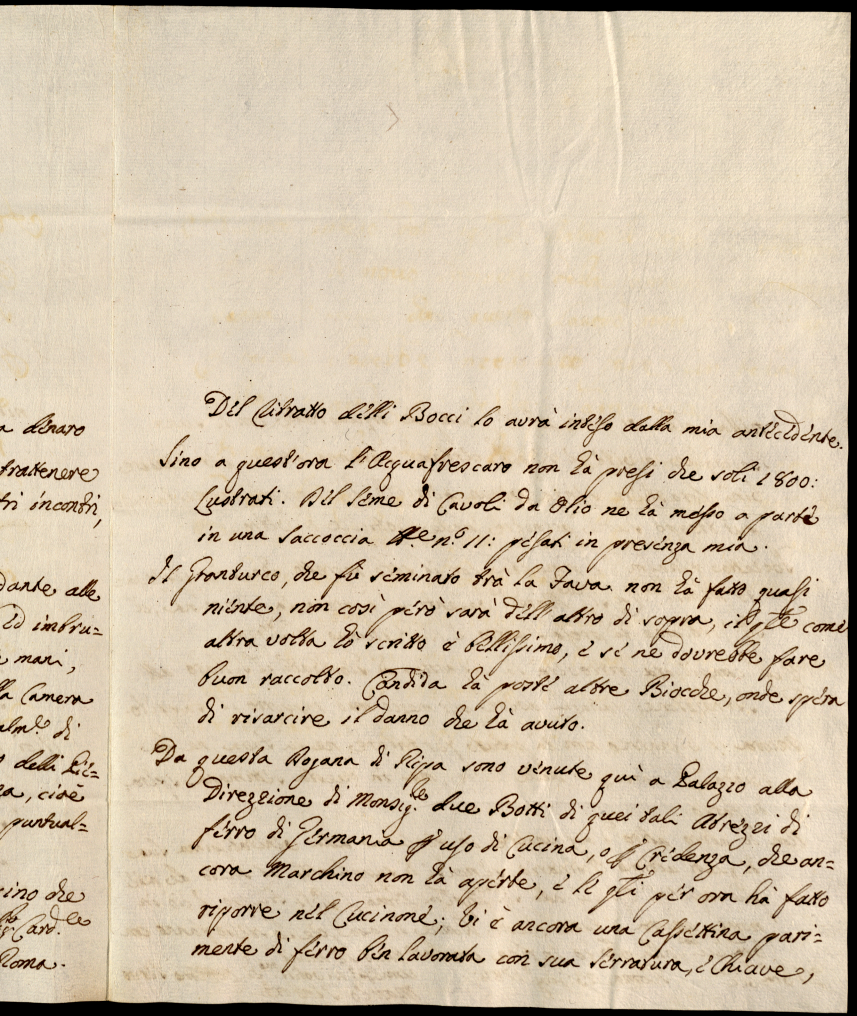 a denaro
trattenere
tri incontri,
dante alle
ed imbru=
mani,
la Camera
alm.te di
delli
za, cioè
puntual=
cino che
Card.le
Roma.
Del Ritratto delli Bocci lo avrà inteso dalla mia antecedente.
Sino a quest'ora l'Acquafrescaro non hà presi che soli 1800:
Lustrati. Del seme di Cavoli da Olio ne hà messo a parte
in una saccoccia lbe nº 11: pesati in presenza mia.
Il Granturco, che fù seminato trà la Fava non hà fatto quasi
niente, non così però sarà dell'altro di sopra, il qle come
altra volta hò scritto è bellissimo, e se ne dovrebbe fare
buon raccolto. Candida hà poste altre Biocche, onde spera
di risarcire il danno che hà avuto.
Da questa Dogana di Ripa sono venute quì a Palazzo alla
Direzzione di Monsig.re due Botti di quei tali Atrezzi di
ferro di Germania p uso di Cucina, o p Credenza, che an=
cora Marchino non hà aperte, e le qli per ora hà fatto
riporre nel Cucinone; Vi è ancora una Cassettina pari=
mente di ferro ben lavorata con sua serratura, e Chiave,